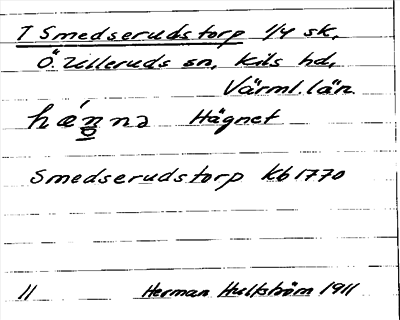 T Smedserudstorp 1/4 sk,
Ö. Ulleruds sn, Kils hd,
Värml. län
Hägnet
Smedserudstorp Kb 1770
11 Herman Hultström 1911